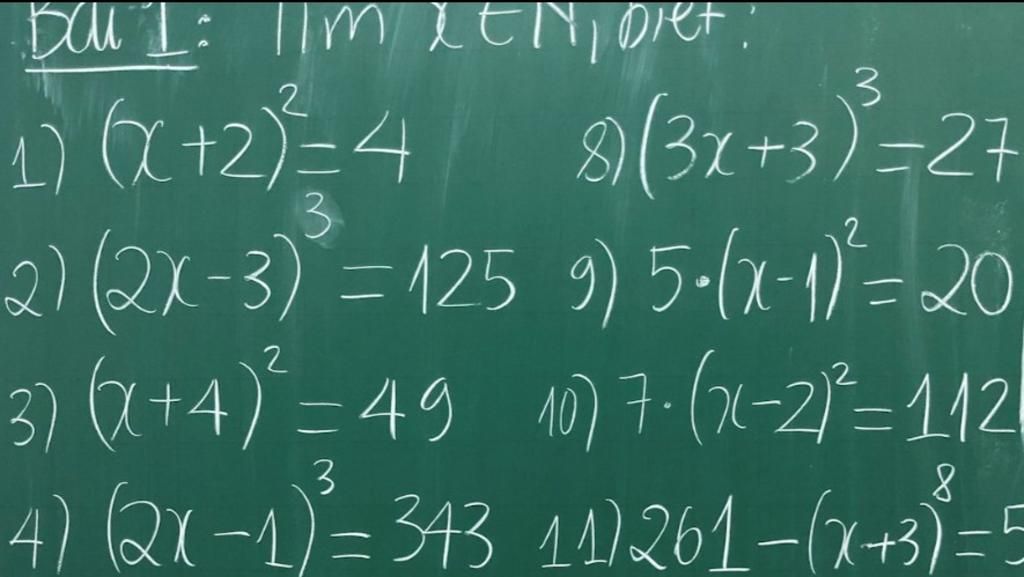 Bài 1: Tìm x ∈ N, biết:
1) (x+2)² = 4
8) (3x+3)³ = 27
2) (2x-3)³ = 125
9) 5·(x-1)² = 20
3) (x+4)² = 49
10) 7·(x-2)² = 112
4) (2x-1)³ = 343
11) 261 - (x+3)⁸ = 5